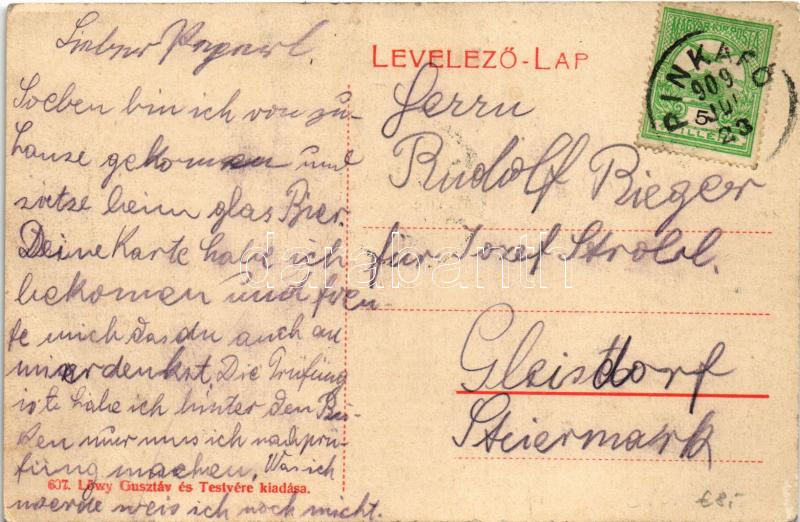 Lieber
Soeben bin ich von zu-
hause gekomen und
sietze beim glas Bier.
Deine Karte habe ich
bekomen und freu-
te mich das du auch an
mier denkst. Die Prüfung
habe ich hinter den Rü-
ken nur mus ich nachprü-
fung machen. Was ich
werde weis ich noch nicht.
607. Löwy Gusztáv és Testvére kiadása.
LEVELEZŐ-LAP
Herrn
Rudolf Rieger
für Josef Strobl.
Gleisdorf
Steiermark
MAGYAR POSTA
FILLÉR
PINKAFŐ
909
JUL
23
5
darabanth
€8,-